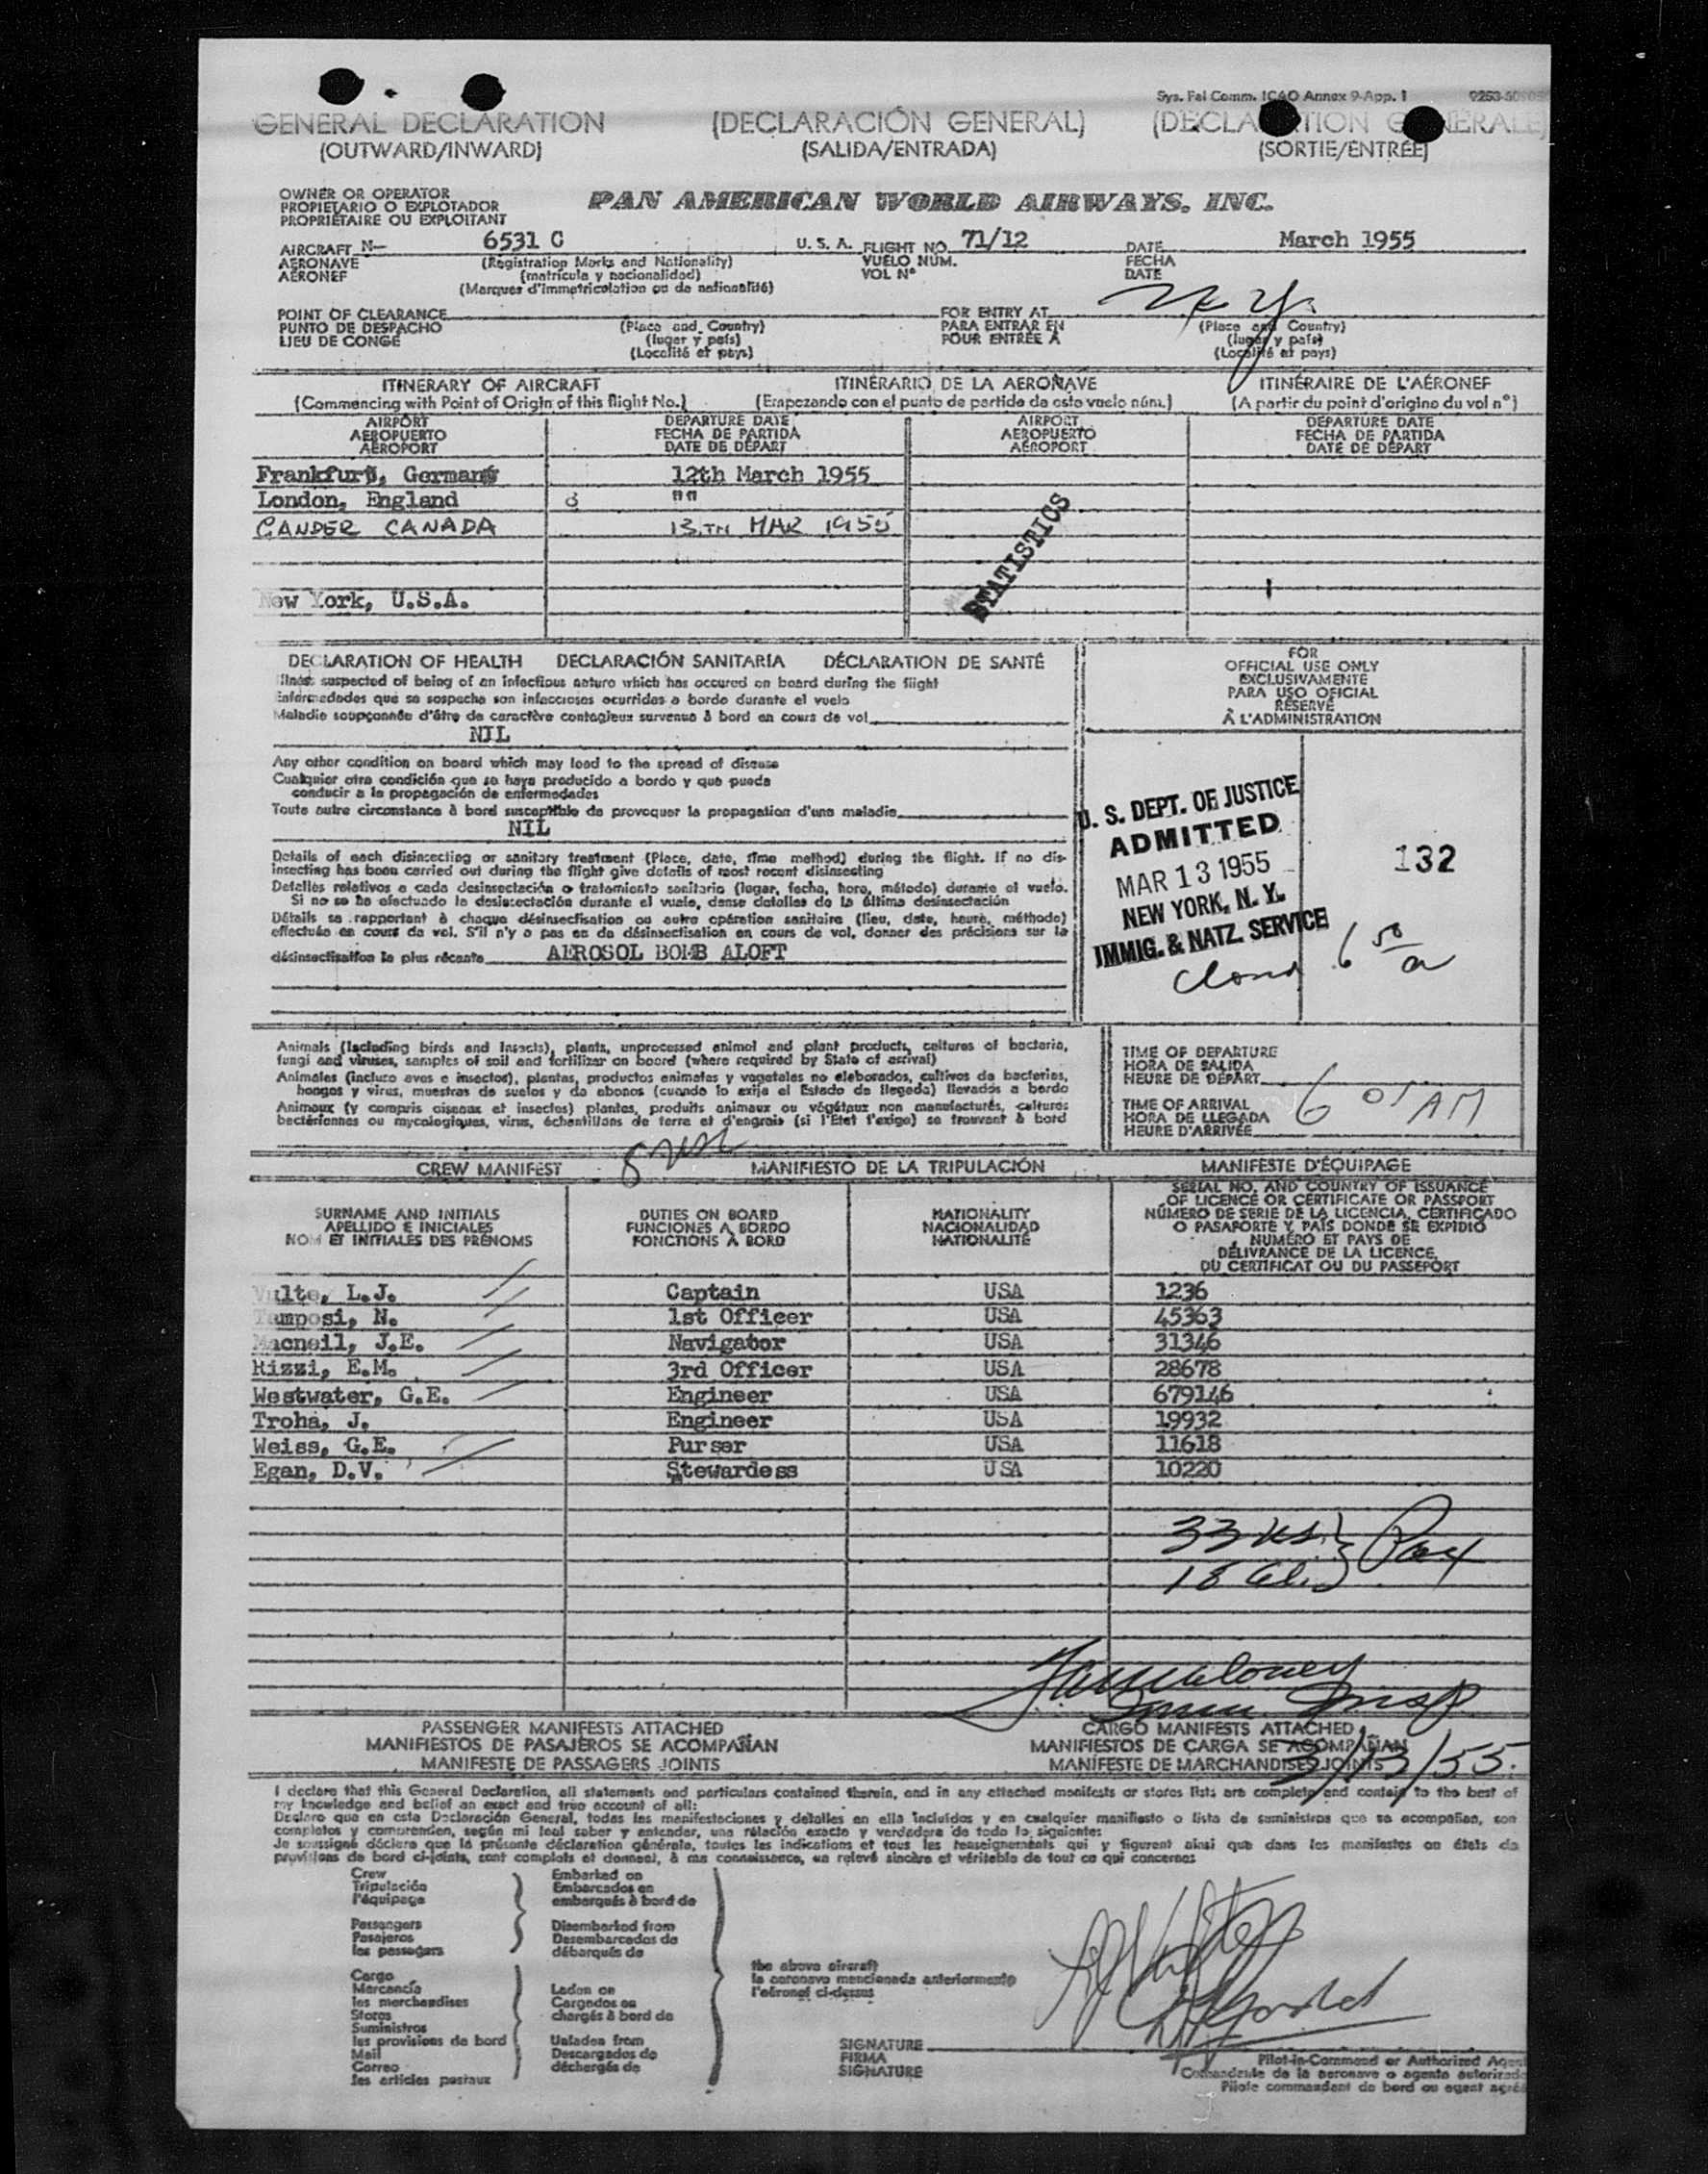 Sys. Fal Comm. ICAO Annex 9-App. 1
GENERAL DECLARATION (DECLARACIÓN GENERAL)
(OUTWARD/INWARD) (SALIDA/ENTRADA) (SORTIE/ENTRÉE)
OWNER OR OPERATOR
PROPIETARIO O EXPLOTADOR
PROPRIÉTAIRE OU EXPLOITANT
PAN AMERICAN WORLD AIRWAYS, INC.
AIRCRAFT N- 6531 C U. S. A. FLIGHT NO. 71/12 DATE March 1955
AERONAVE (Registration Marks and Nationality) VUELO NÚM. FECHA
AÉRONEF (matrícula y nacionalidad) VOL Nº DATE
(Marques d'immatriculation ou de nationalité)
POINT OF CLEARANCE FOR ENTRY AT N.Y.
PUNTO DE DESPACHO (Place and Country) PARA ENTRAR EN (Place and Country)
LIEU DE CONGÉ (lugar y país) POUR ENTRÉE À (lugar y país)
(Localité et pays) (Localité et pays)
ITINERARY OF AIRCRAFT ITINERARIO DE LA AERONAVE ITINÉRAIRE DE L'AÉRONEF
(Commencing with Point of Origin of this flight No.) (Empezando con el punto de partida de este vuelo núm.) (A partir du point d'origine du vol nº)
AIRPORT DEPARTURE DATE AIRPORT DEPARTURE DATE
AEROPUERTO FECHA DE PARTIDA AEROPUERTO FECHA DE PARTIDA
AÉROPORT DATE DE DÉPART AÉROPORT DATE DE DÉPART
Frankfurt, Germany 12th March 1955
London, England " "
GANDER CANADA 13.TH MAR 1955
STATISTICS
New York, U.S.A.
DECLARATION OF HEALTH DECLARACIÓN SANITARÍA DÉCLARATION DE SANTÉ
Illness suspected of being of an infectious nature which has occured on board during the flight
Enfermedades que se sospecha son infecciosas ocurridas a bordo durante el vuelo
Maladie soupçonnée d'être de caractère contagieux survenue à bord en cours de vol
NIL
Any other condition on board which may lead to the spread of disease
Cualquier otra condición que se haya producido a bordo y que pueda
conducir a la propagación de enfermedades
Toute autre circonstance à bord susceptible de provoquer la propagation d'une maladie
NIL
Details of each disinsecting or sanitary treatment (Place, date, time method) during the flight. If no dis-
insecting has been carried out during the flight give details of most recent disinsecting
Detalles relativos a cada desinsectación o tratamiento sanitario (lugar, fecha, hora, método) durante el vuelo.
Si no se ha efectuado la desinsectación durante el vuelo, dense detalles de la última desinsectación
Détails se rapportant à chaque désinsectisation ou autre opération sanitaire (lieu, date, heure, méthode)
effectuée en cours de vol. S'il n'y a pas eu de désinsectisation en cours de vol, donner des précisions sur la
désinsectisation la plus récente AEROSOL BOMB ALOFT
FOR
OFFICIAL USE ONLY
EXCLUSIVAMENTE
PARA USO OFICIAL
RÉSERVÉ
À L'ADMINISTRATION
U. S. DEPT. OF JUSTICE
ADMITTED
MAR 13 1955
NEW YORK, N. Y.
IMMIG. & NATZ. SERVICE
132
6 50 a
Animals (Including birds and Insects), plants, unprocessed animal and plant products, cultures of bacteria,
fungi and viruses, samples of soil and fertilizer on board (where required by State of arrival)
Animales (incluso aves e insectos), plantas, productos animales y vegetales no elaborados, cultivos de bacterias,
hongos y virus, muestras de suelos y de abonos (cuando lo exija el Estado de llegada) llevados a bordo
Animaux (y compris oiseaux et insectes) plantes, produits animaux ou végétaux non manufacturés, cultures
bactériennes ou mycologiques, virus, échantillons de terre et d'engrais (si l'Etat l'exige) se trouvant à bord
TIME OF DEPARTURE
HORA DE SALIDA
HEURE DE DÉPART
TIME OF ARRIVAL
HORA DE LLEGADA
HEURE D'ARRIVÉE
6 01 AM
CREW MANIFEST MANIFIESTO DE LA TRIPULACIÓN MANIFESTE D'ÉQUIPAGE
SURNAME AND INITIALS
APELLIDO E INICIALES
NOM ET INITIALES DES PRÉNOMS
DUTIES ON BOARD
FUNCIONES A BORDO
FONCTIONS À BORD
NATIONALITY
NACIONALIDAD
NATIONALITÉ
SERIAL NO. AND COUNTRY OF ISSUANCE
OF LICENCE OR CERTIFICATE OR PASSPORT
NÚMERO DE SERIE DE LA LICENCIA, CERTIFICADO
O PASAPORTE Y PAÍS DONDE SE EXPIDIÓ
NUMÉRO ET PAYS DE
DÉLIVRANCE DE LA LICENCE,
DU CERTIFICAT OU DU PASSEPORT
Vulte, L.J. Captain USA 1236
Tamposi, N. 1st Officer USA 45363
Macneil, J.E. Navigator USA 31346
Rizzi, E.M. 3rd Officer USA 28678
Westwater, G.E. Engineer USA 679146
Troha, J. Engineer USA 19932
Weiss, G.E. Purser USA 11618
Egan, D.V. Stewardess USA 10220
33 US. } Pax
18 Al.
Imm Insp
3/13/55.
PASSENGER MANIFESTS ATTACHED CARGO MANIFESTS ATTACHED
MANIFIESTOS DE PASAJEROS SE ACOMPAÑAN MANIFIESTOS DE CARGA SE ACOMPAÑAN
MANIFESTE DE PASSAGERS JOINTS MANIFESTE DE MARCHANDISES JOINTS
I declare that this General Declaration, all statements and particulars contained therein, and in any attached manifests or stores lists are complete and contain to the best of
my knowledge and belief an exact and true account of all:
Declaro que en esta Declaración General, todas las manifestaciones y detalles en ella incluídos y en cualquier manifiesto o lista de suministros que se acompañan, son
completos y comprenden, según mi leal saber y entender, una relación exacta y verdadera de todo lo siguiente:
Je soussigné déclare que la présente déclaration générale, toutes les indications et tous les renseignements qui y figurent ainsi que dans les manifestes ou états de
provisions de bord ci-joints, sont complets et donnent, à ma connaissance, un relevé sincère et véritable de tout ce qui concerne:
Crew
Tripulación
l'équipage
Passengers
Pasajeros
les passagers
Cargo
Mercancía
les marchandises
Stores
Suministros
les provisions de bord
Mail
Correo
les articles postaux
Embarked on
Embarcados en
embarqués à bord de
Disembarked from
Desembarcados de
débarqués de
Laden on
Cargados en
chargés à bord de
Unladen from
Descargados de
déchargés de
the above aircraft
la aeronave mencionada anteriormente
l'aéronef ci-dessus
SIGNATURE
FIRMA
SIGNATURE
Pilot-in-Command or Authorized Agent
Comandante de la aeronave o agente autorizado
Pilote commandant de bord ou agent agréé